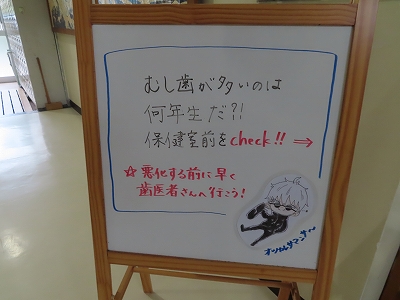 むし歯が多いのは
何年生だ?!
保健室前をcheck!! ⇒
☆悪化する前に早く
歯医者さんへ行こう!